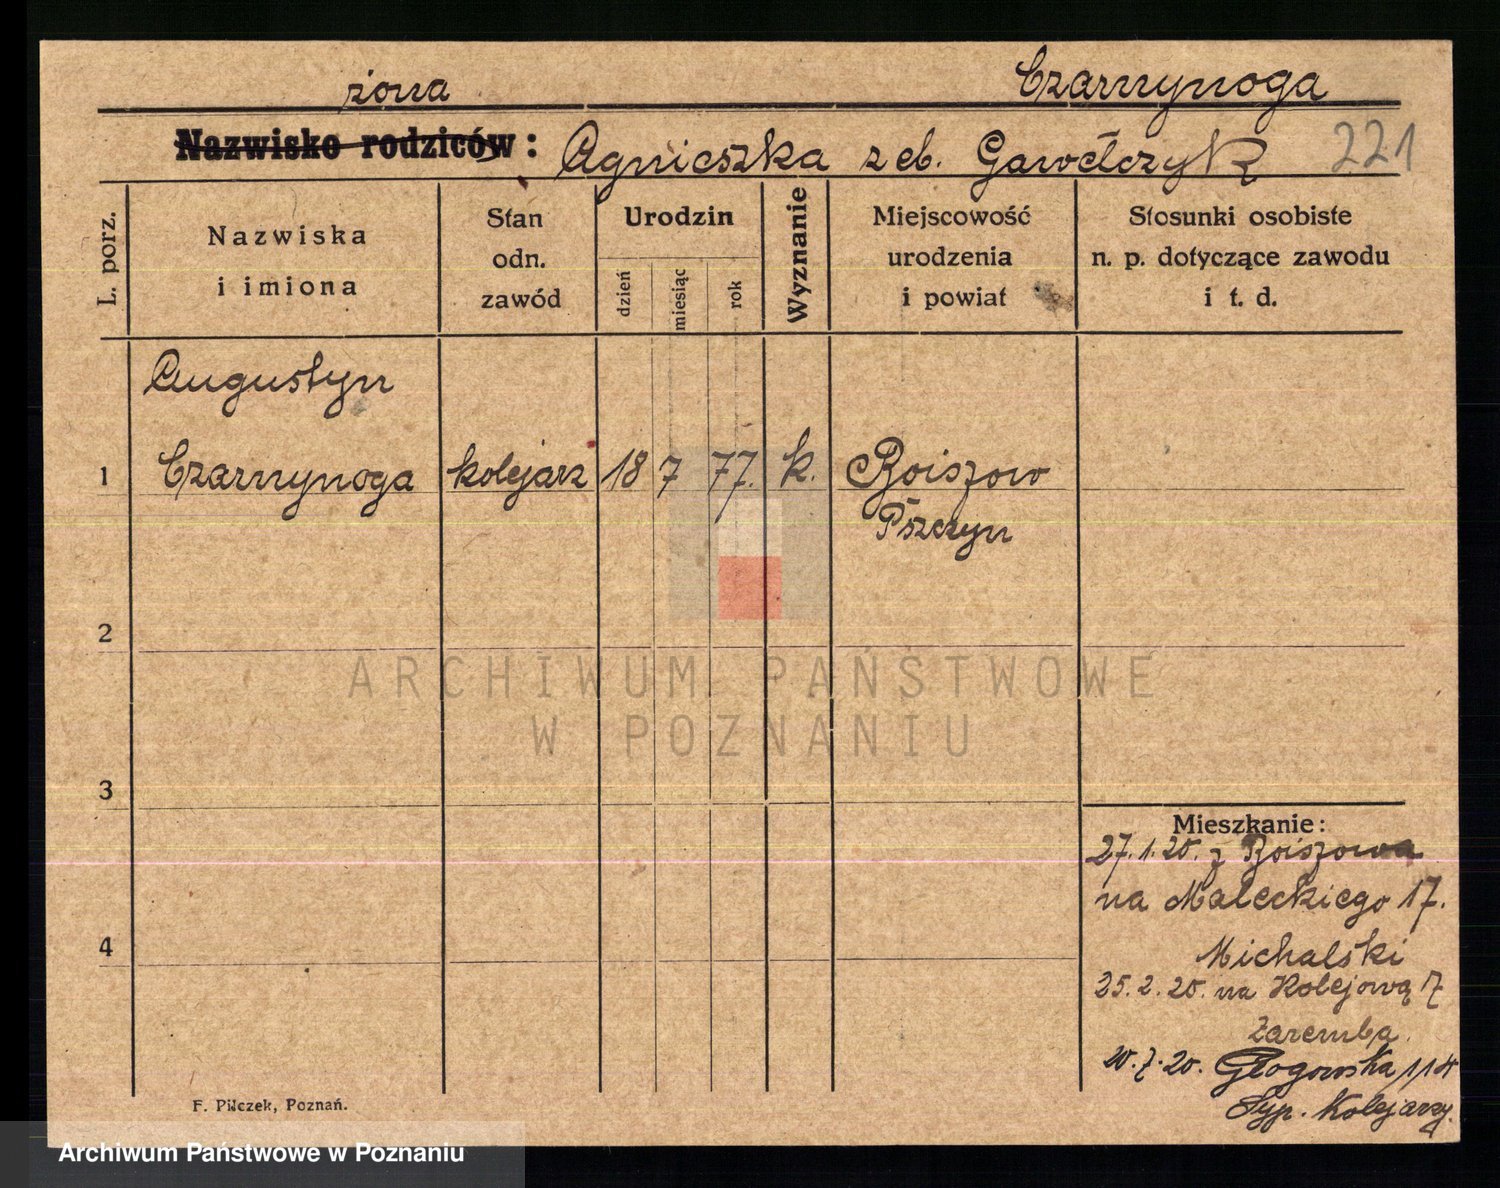 żona
Czarnynoga
Nazwisko rodziców: Agnieszka z cb. Gawełczyk 221
L. porz.
Nazwiska
i imiona
Stan
odn.
zawód
Urodzin
dzień
miesiąc
rok
Wyznanie
Miejscowość
urodzenia
i powiat
Stosunki osobiste
n. p. dotyczące zawodu
i t. d.
Augustyn
1 Czarnynoga kolejarz 18 7 77. k. Boiszow
Pszczyn
2
3
4
ARCHIWUM PAŃSTWOWE
W POZNANIU
Mieszkanie:
27.1.20. z Boiszowa
na Małeckiego 17.
Michalski
25.2.20. na Kolejową 7
Zaremba.
20.7.20. Głogowska 114
Syp. Kolejarzy.
F. Pilczek, Poznań.
Archiwum Państwowe w Poznaniu